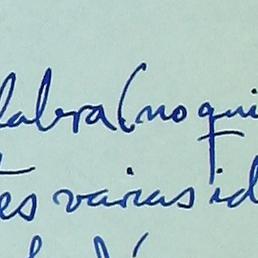 labra (no qui
tes varias id